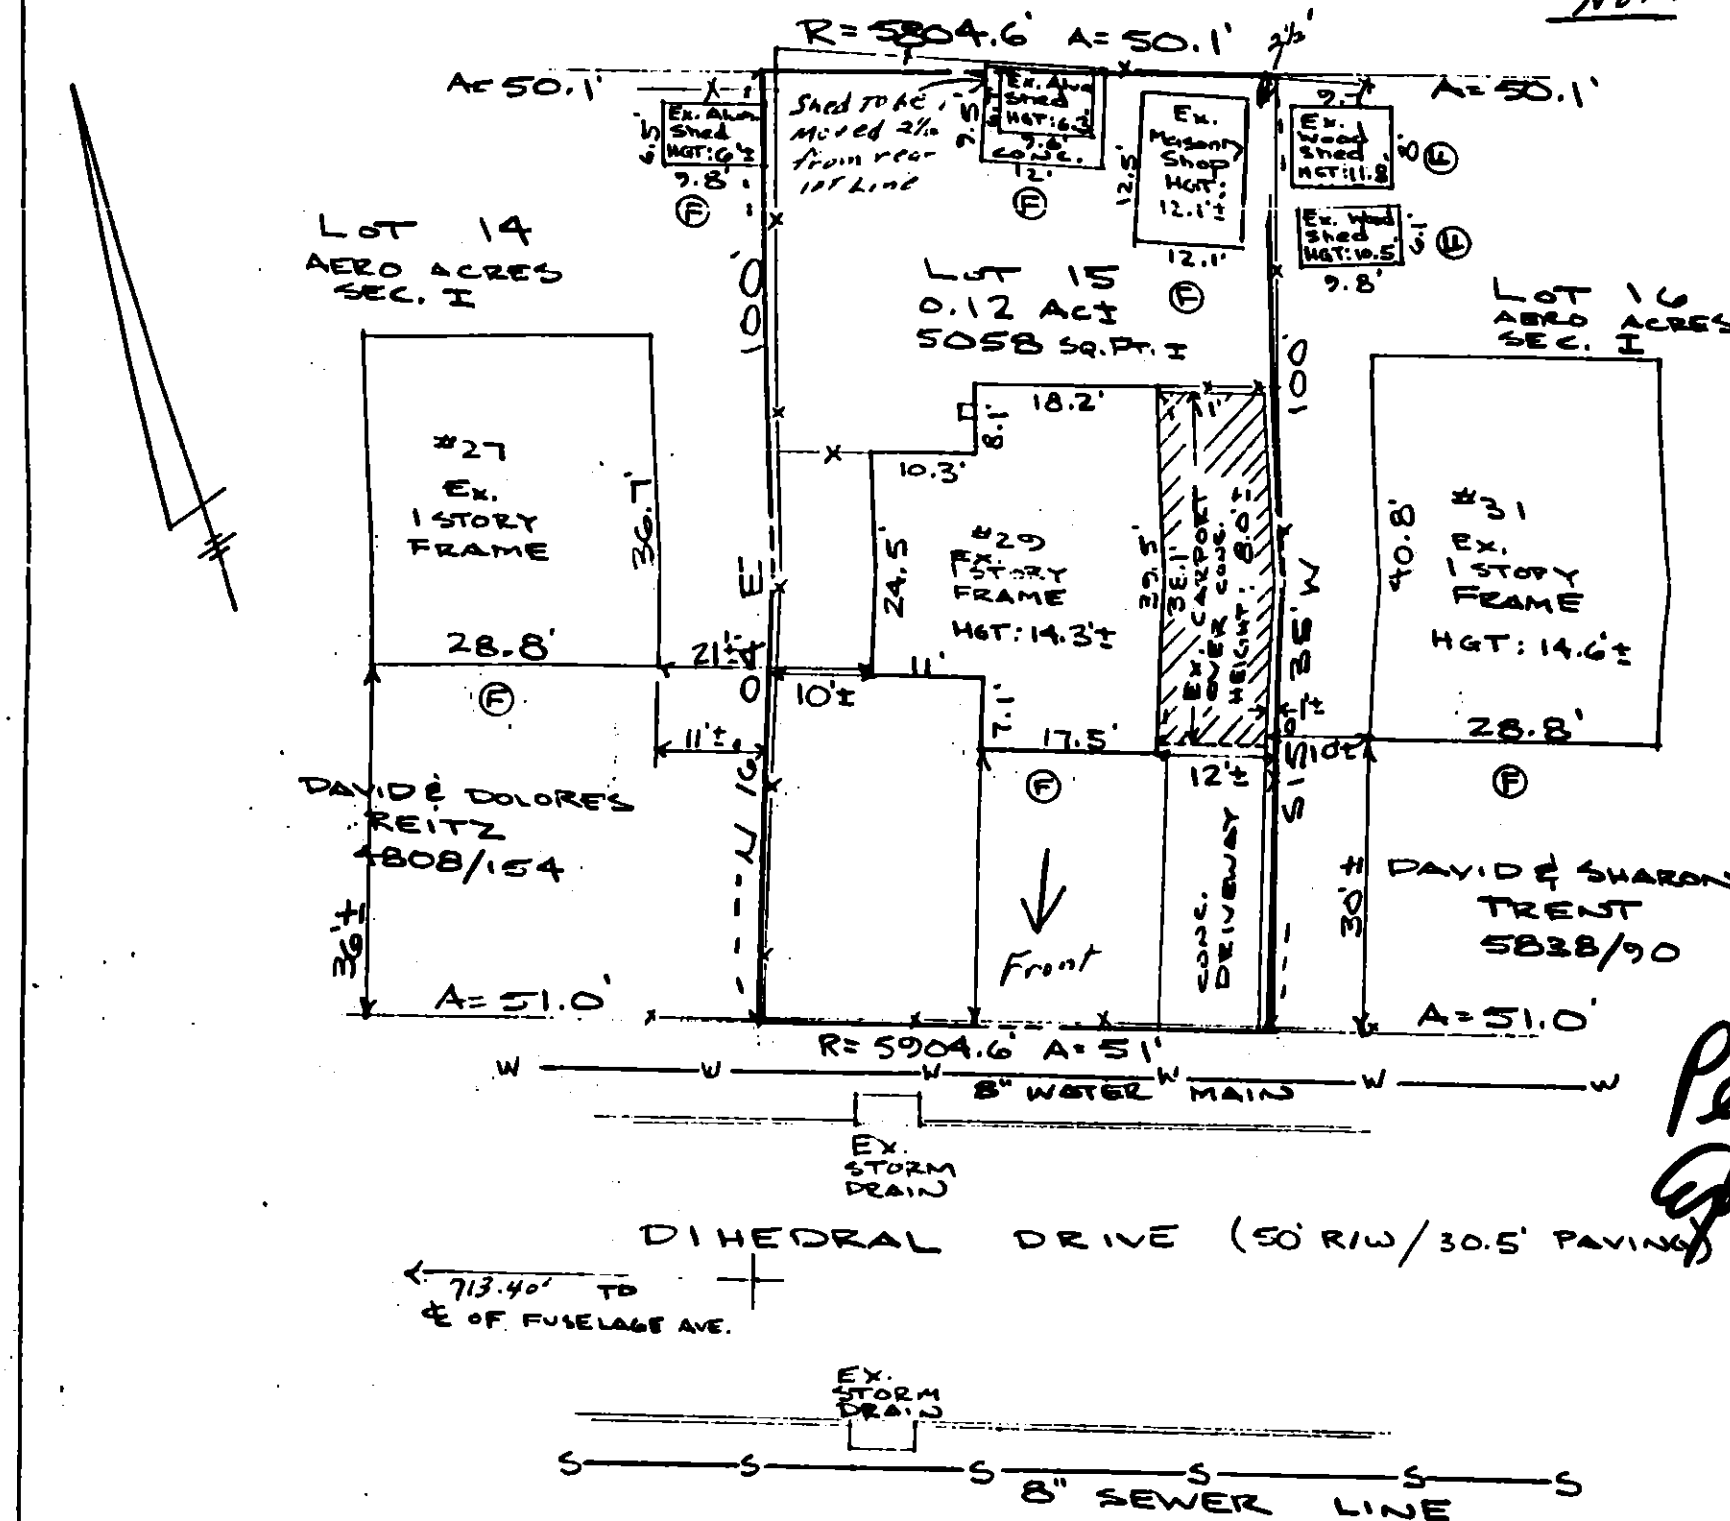 R= 5804.6' A= 50.1'
2½'
A= 50.1'
A= 50.1'
Ex. Alum
Shed
HGT: 6'±
6.5'
9.8'
F
Shed To be
Moved 2½
from rear
lot Line
Ex. Alum
Shed
9.5'
CONC.
12'
F
Ex.
Masonry
Shop
HGT:
12.1'±
12.5'
12.1'
F
9.7'
Ex.
Wood
Shed
HGT: 11.8
8'
F
Ex. Wood
Shed
HGT: 10.5'
6.1'
F
9.8'
LOT 14
AERO ACRES
SEC. I
LOT 15
0.12 AC±
5058 SQ.FT.±
LOT 16
AERO ACRES
SEC. I
N 16 04 E 100.
S 15 35' W 100'
#27
Ex.
1 STORY
FRAME
36.7'
28.8'
F
21'±
11'±
36'±
18.2'
8.1'
10.3'
24.5'
#29
Ex.
1 STORY
FRAME
HGT: 14.3'±
39.5'
38.1'
11'
EX. CARPORT
OVER CONC.
HEIGHT: 8.0'±
10'±
11'
7.1'
17.5'
F
12'±
10'±
#31
Ex.
1 STORY
FRAME
HGT: 14.6'±
40.8'
28.8'
F
30'±
DAVID & DOLORES
REITZ
4808/154
DAVID & SHARON
TRENT
5838/90
CONC.
DRIVEWAY
Front
A= 51.0'
A= 51.0'
R= 5904.6' A= 51'
W W W W W W
8" WATER MAIN
EX.
STORM
DRAIN
DIHEDRAL DRIVE (50' R/W / 30.5' PAVING)
713.40' TO
℄ OF FUSELAGE AVE.
EX.
STORM
DRAIN
S S S S S S
8" SEWER LINE